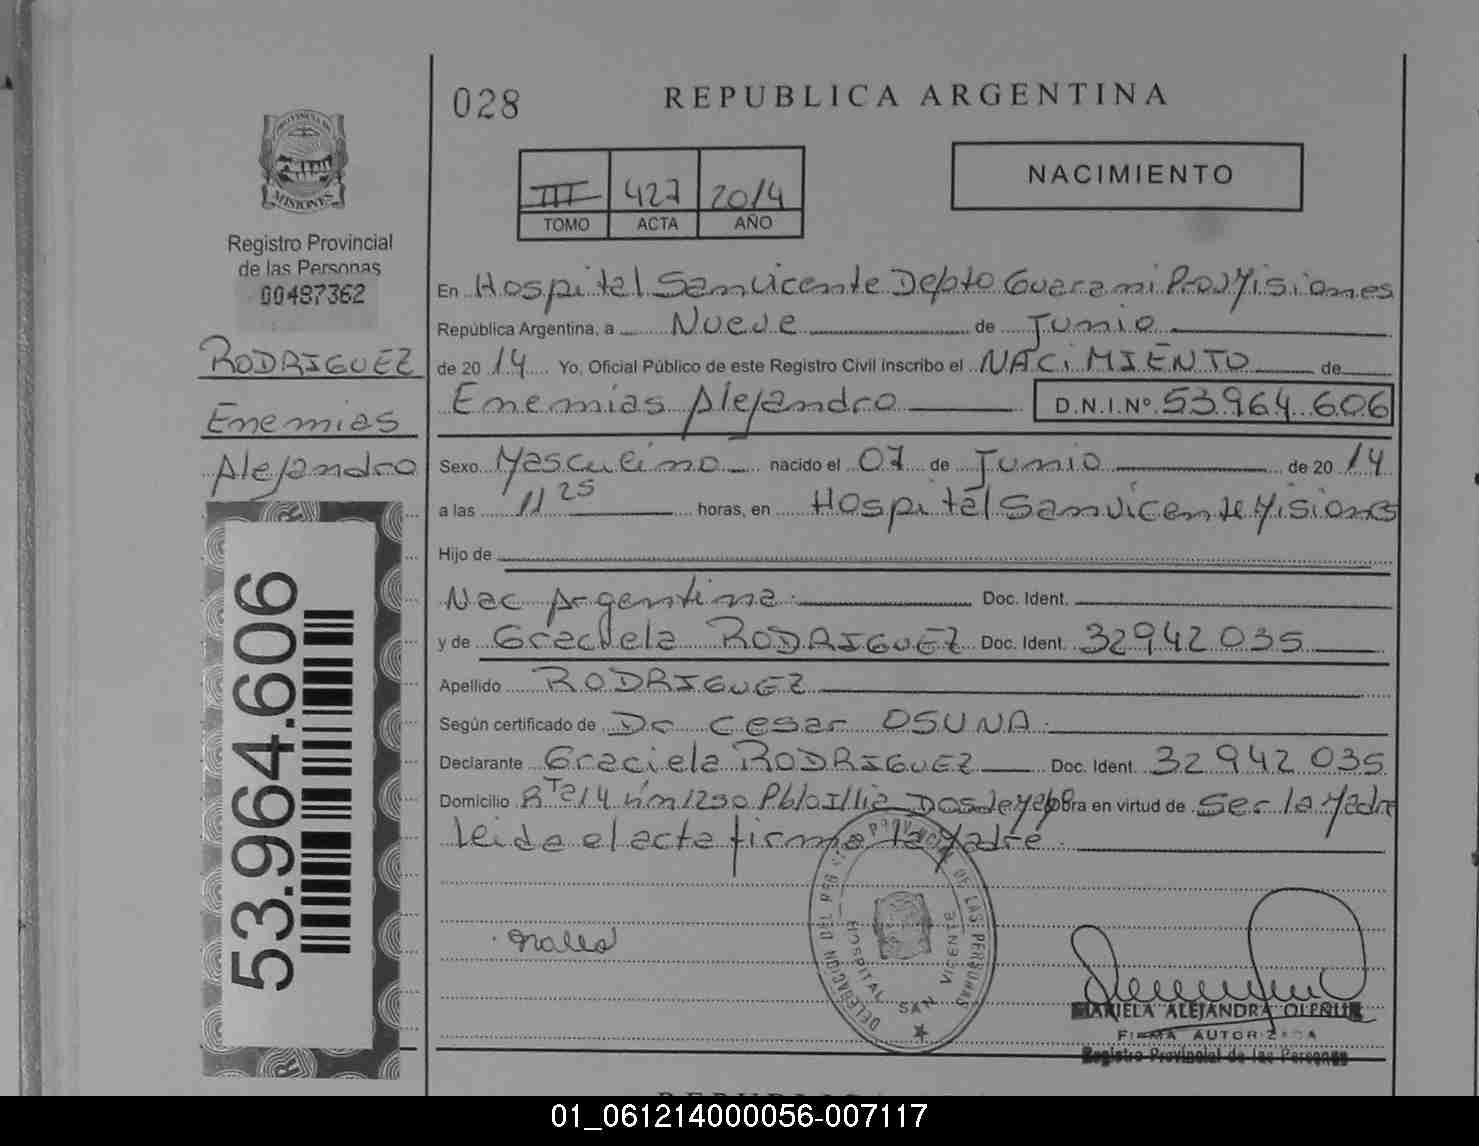 028
REPUBLICA ARGENTINA
PROVINCIA DE
MISIONES
Registro Provincial
de las Personas
00487362
RODRIGUEZ
Enemias
Alejandro
53.964.606
III 427 2014
TOMO ACTA AÑO
NACIMIENTO
En Hospital San Vicente Depto Guarani Prov Misiones
República Argentina, a Nueve de Junio
de 2014 Yo, Oficial Público de este Registro Civil inscribo el NACIMIENTO de
Enemias Alejandro D.N.I.Nº 53.964.606
Sexo Masculino nacido el 07 de Junio de 2014
a las 11 25 horas, en Hospital San Vicente Misiones
Hijo de
Nac Argentina Doc. Ident.
y de Graciela RODRIGUEZ Doc. Ident. 32942035
Apellido RODRIGUEZ
Según certificado de Dr Cesar OSUNA
Declarante Graciela RODRIGUEZ Doc. Ident. 32942035
Domicilio Rta 14 km 1250 Dos de Mayo Obra en virtud de Ser la Madre
Leida el acta firma la Madre
DELEGACION DEL REGISTRO PROVINCIAL DE LAS PERSONAS
HOSPITAL SAN VICENTE
MARIELA ALEJANDRA
FIRMA AUTORIZADA
Registro Provincial de las Personas
01_061214000056-007117